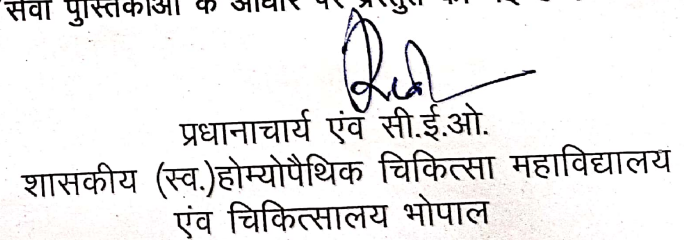 सेवा पुस्तिकाओं के आधार पर प्रस्तुत की
प्रधानाचार्य एंव सी.ई.ओ.
शासकीय (स्व.)होम्योपैथिक चिकित्सा महाविद्यालय
एंव चिकित्सालय भोपाल